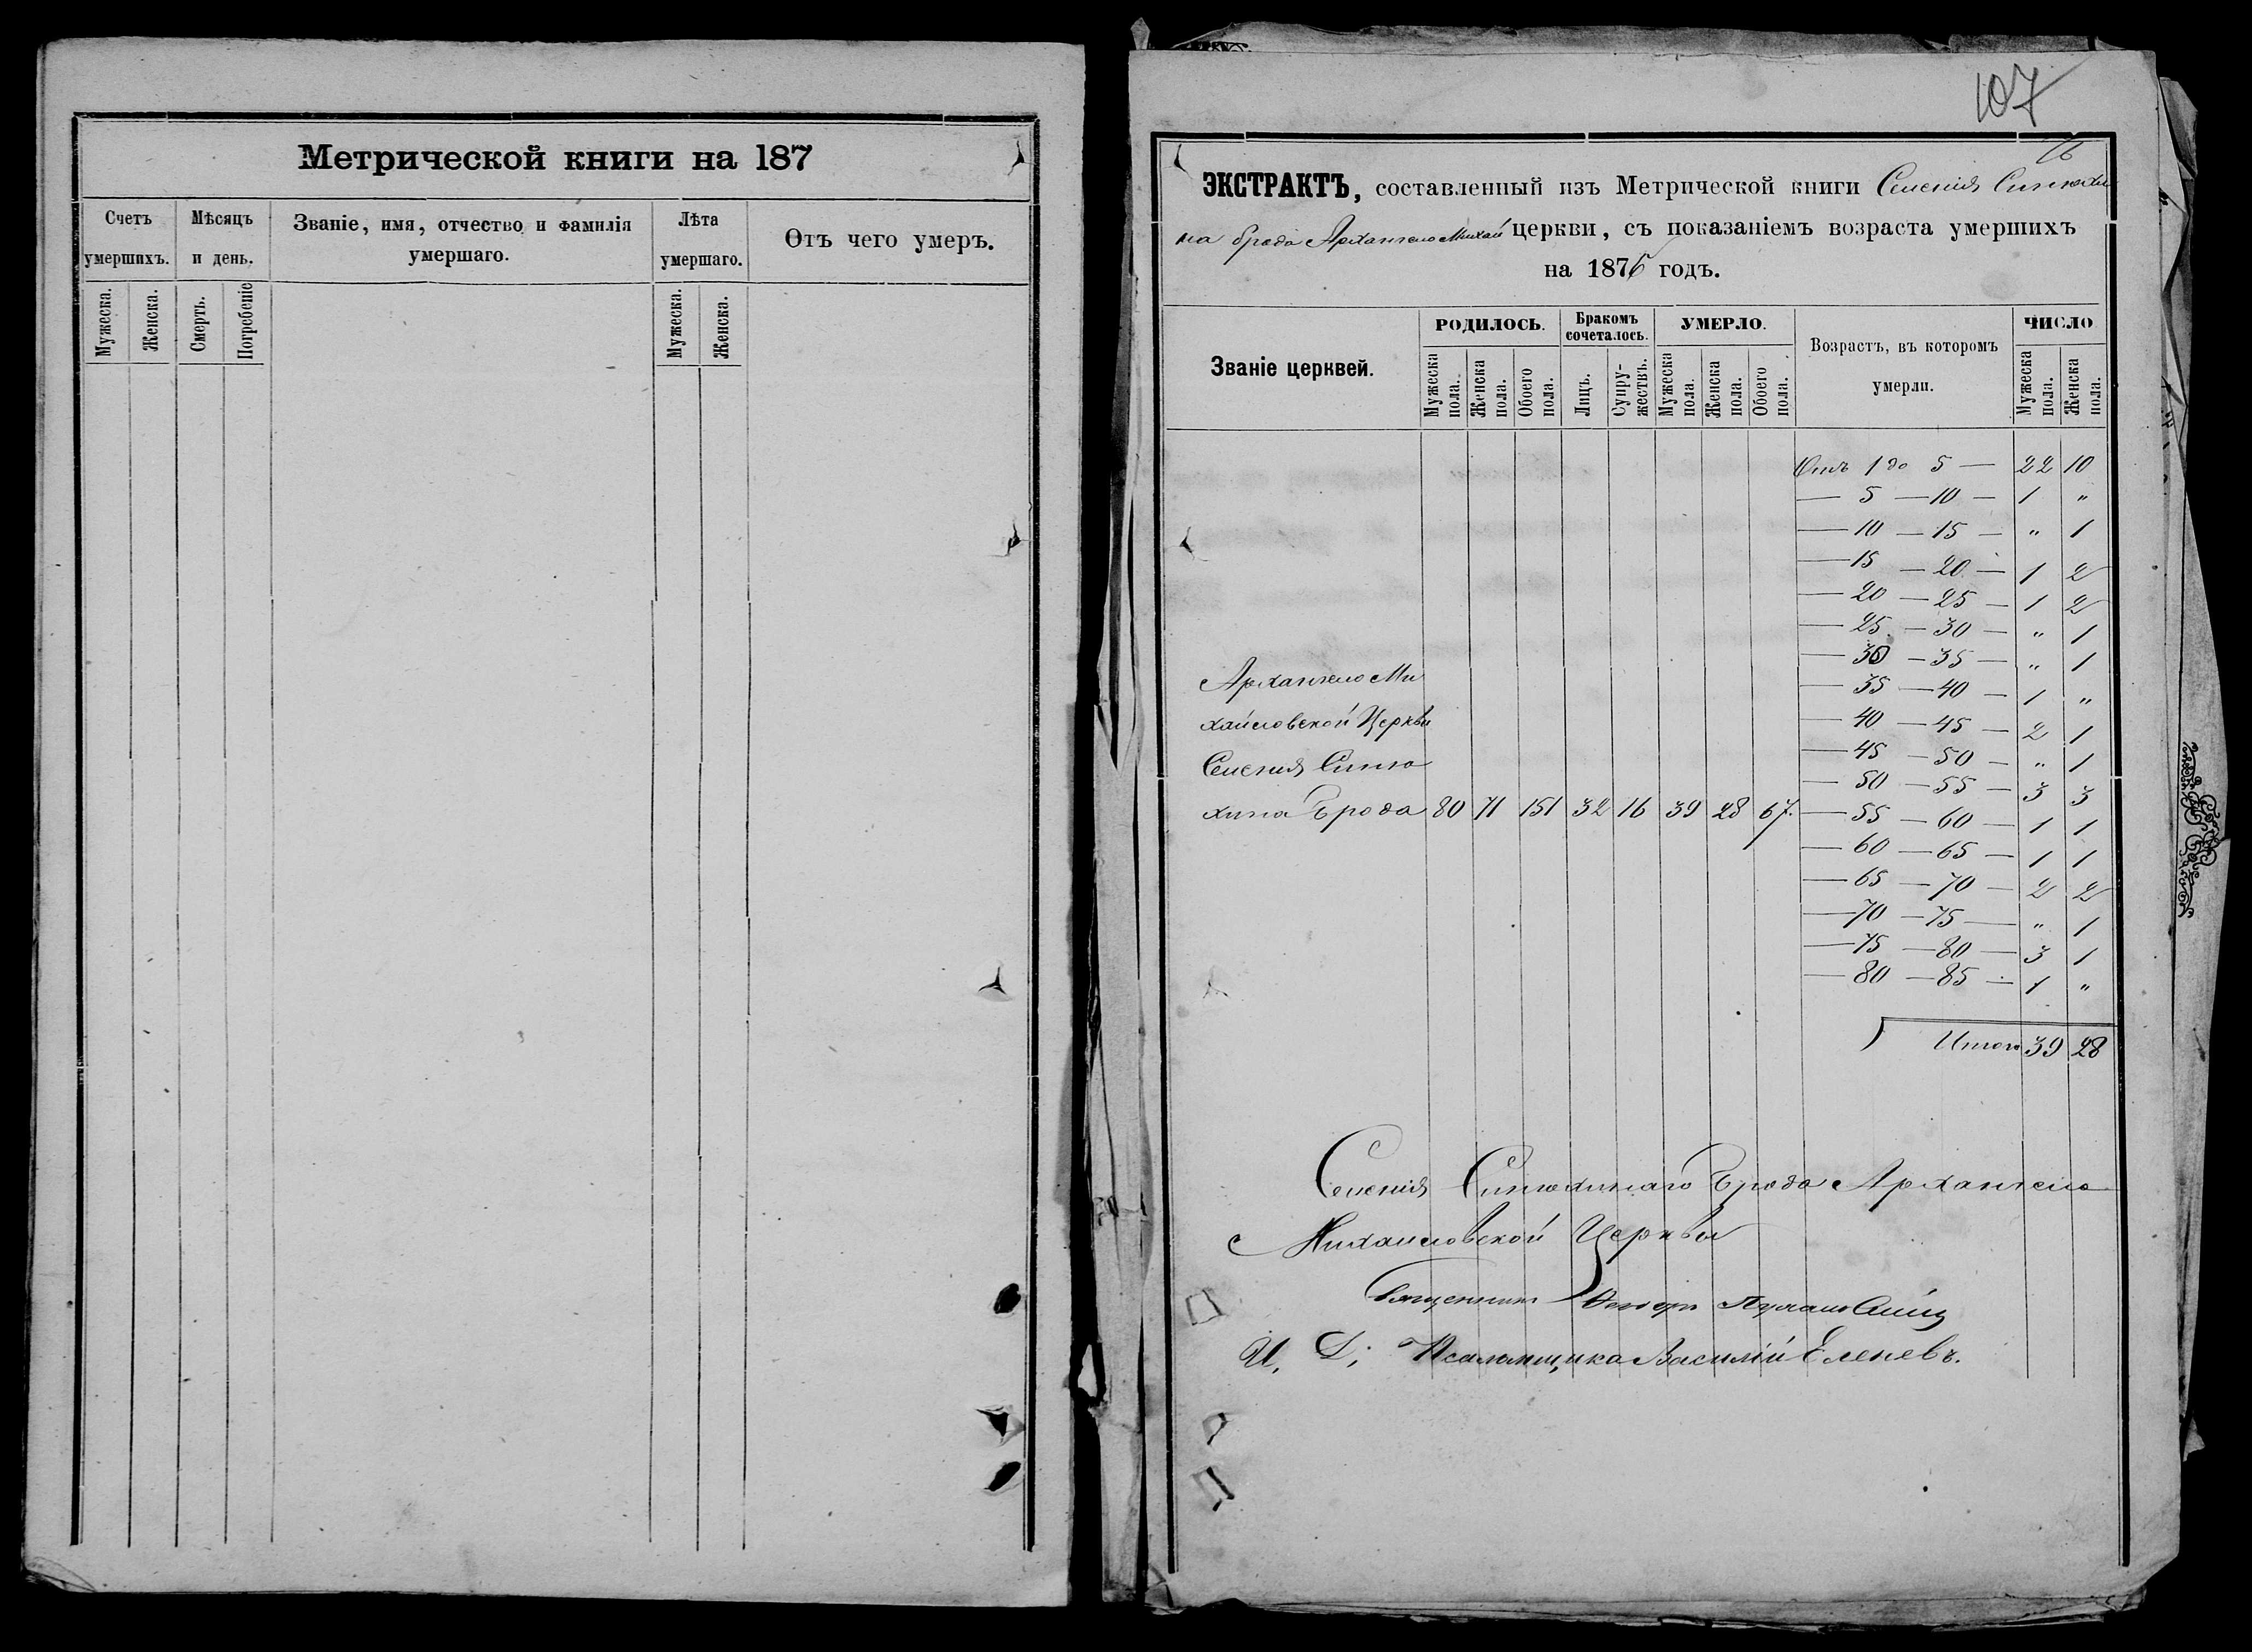 Метрической книги на 187
Счетъ умершихъ.
Мѣсяцъ и день.
Званіе, имя, отчество и фамилія умершаго.
Лѣта умершаго.
Отъ чего умеръ.
Мужеска.
Женска.
Смерть.
Погребеніе
Мужеска.
Женска.
107
ЭКСТРАКТЪ, составленный изъ Метрической книги Селенія Синюхи
на брода Архангело Михай церкви, съ показаніемъ возраста умершихъ
на 1876 годъ.
Званіе церквей.
РОДИЛОСЬ.
Бракомъ сочеталось.
УМЕРЛО.
Возрастъ, въ которомъ умерли.
ЧИСЛО
Мужеска пола.
Женска пола.
Обоего пола.
Лицъ.
Супружествъ.
Мужеска пола.
Женска пола.
Обоего пола.
Мужеска пола.
Женска пола.
Отъ 1 до 5 — 22 10
— 5 — 10 — 1 „
— 10 — 15 — „ 1
— 15 — 20 — 1 2
— 20 — 25 — 1 2
— 25 — 30 — „ 1
— 30 — 35 — „ 1
— 35 — 40 — 1 „
— 40 — 45 — 2 1
— 45 — 50 — „ 1
— 50 — 55 — 3 3
— 55 — 60 — 1 1
— 60 — 65 — 1 1
— 65 — 70 — 2 2
— 70 — 75 — „ 1
— 75 — 80 — 3 1
— 80 — 85 — 1 „
Итого 39 28
Архангело Ми
хайловской Церкви
Селенія Синю
хина Брода 80 71 151 32 16 39 28 67.
Селенія Синюхинаго Брода Архангело
Михайловской Церкви
Священникъ
И. Д. Псаломщика Василій Еленевъ.